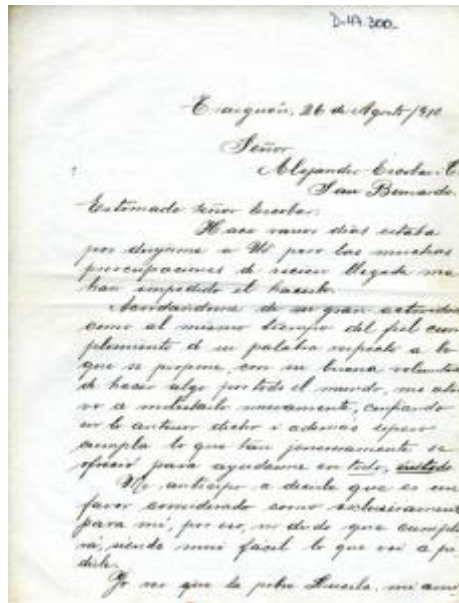 D-47.300_
Traiguén, 26 de Agosto/910
Señor
Alejandro Escobar C.
San Bernardo.
Estimado señor Escobar:
Hace varios días estaba
por dirijirme a Ud pero las muchas
preocupaciones de recien llegada me
han impedido el hacerlo.
Acordándome de su gran actividad
como al mismo tiempo del fiel cum
plimiento de su palabra respecto a lo
que se propone, con su buena voluntad
de hacer algo por todo el mundo, me atre
vo a molestarlo nuevamente, confiando
en lo anterior dicho i además espero
cumpla lo que tan jenerosamente se
ofreció para ayudarme en todo,
Me anticipo a decirle que es un
favor considerado como esclusivamente
para mí, por eso, no dudo que cumpli
rá, siendo mui fácil lo que voi a pe
dirle.
Yo veo que la pobre mi ami